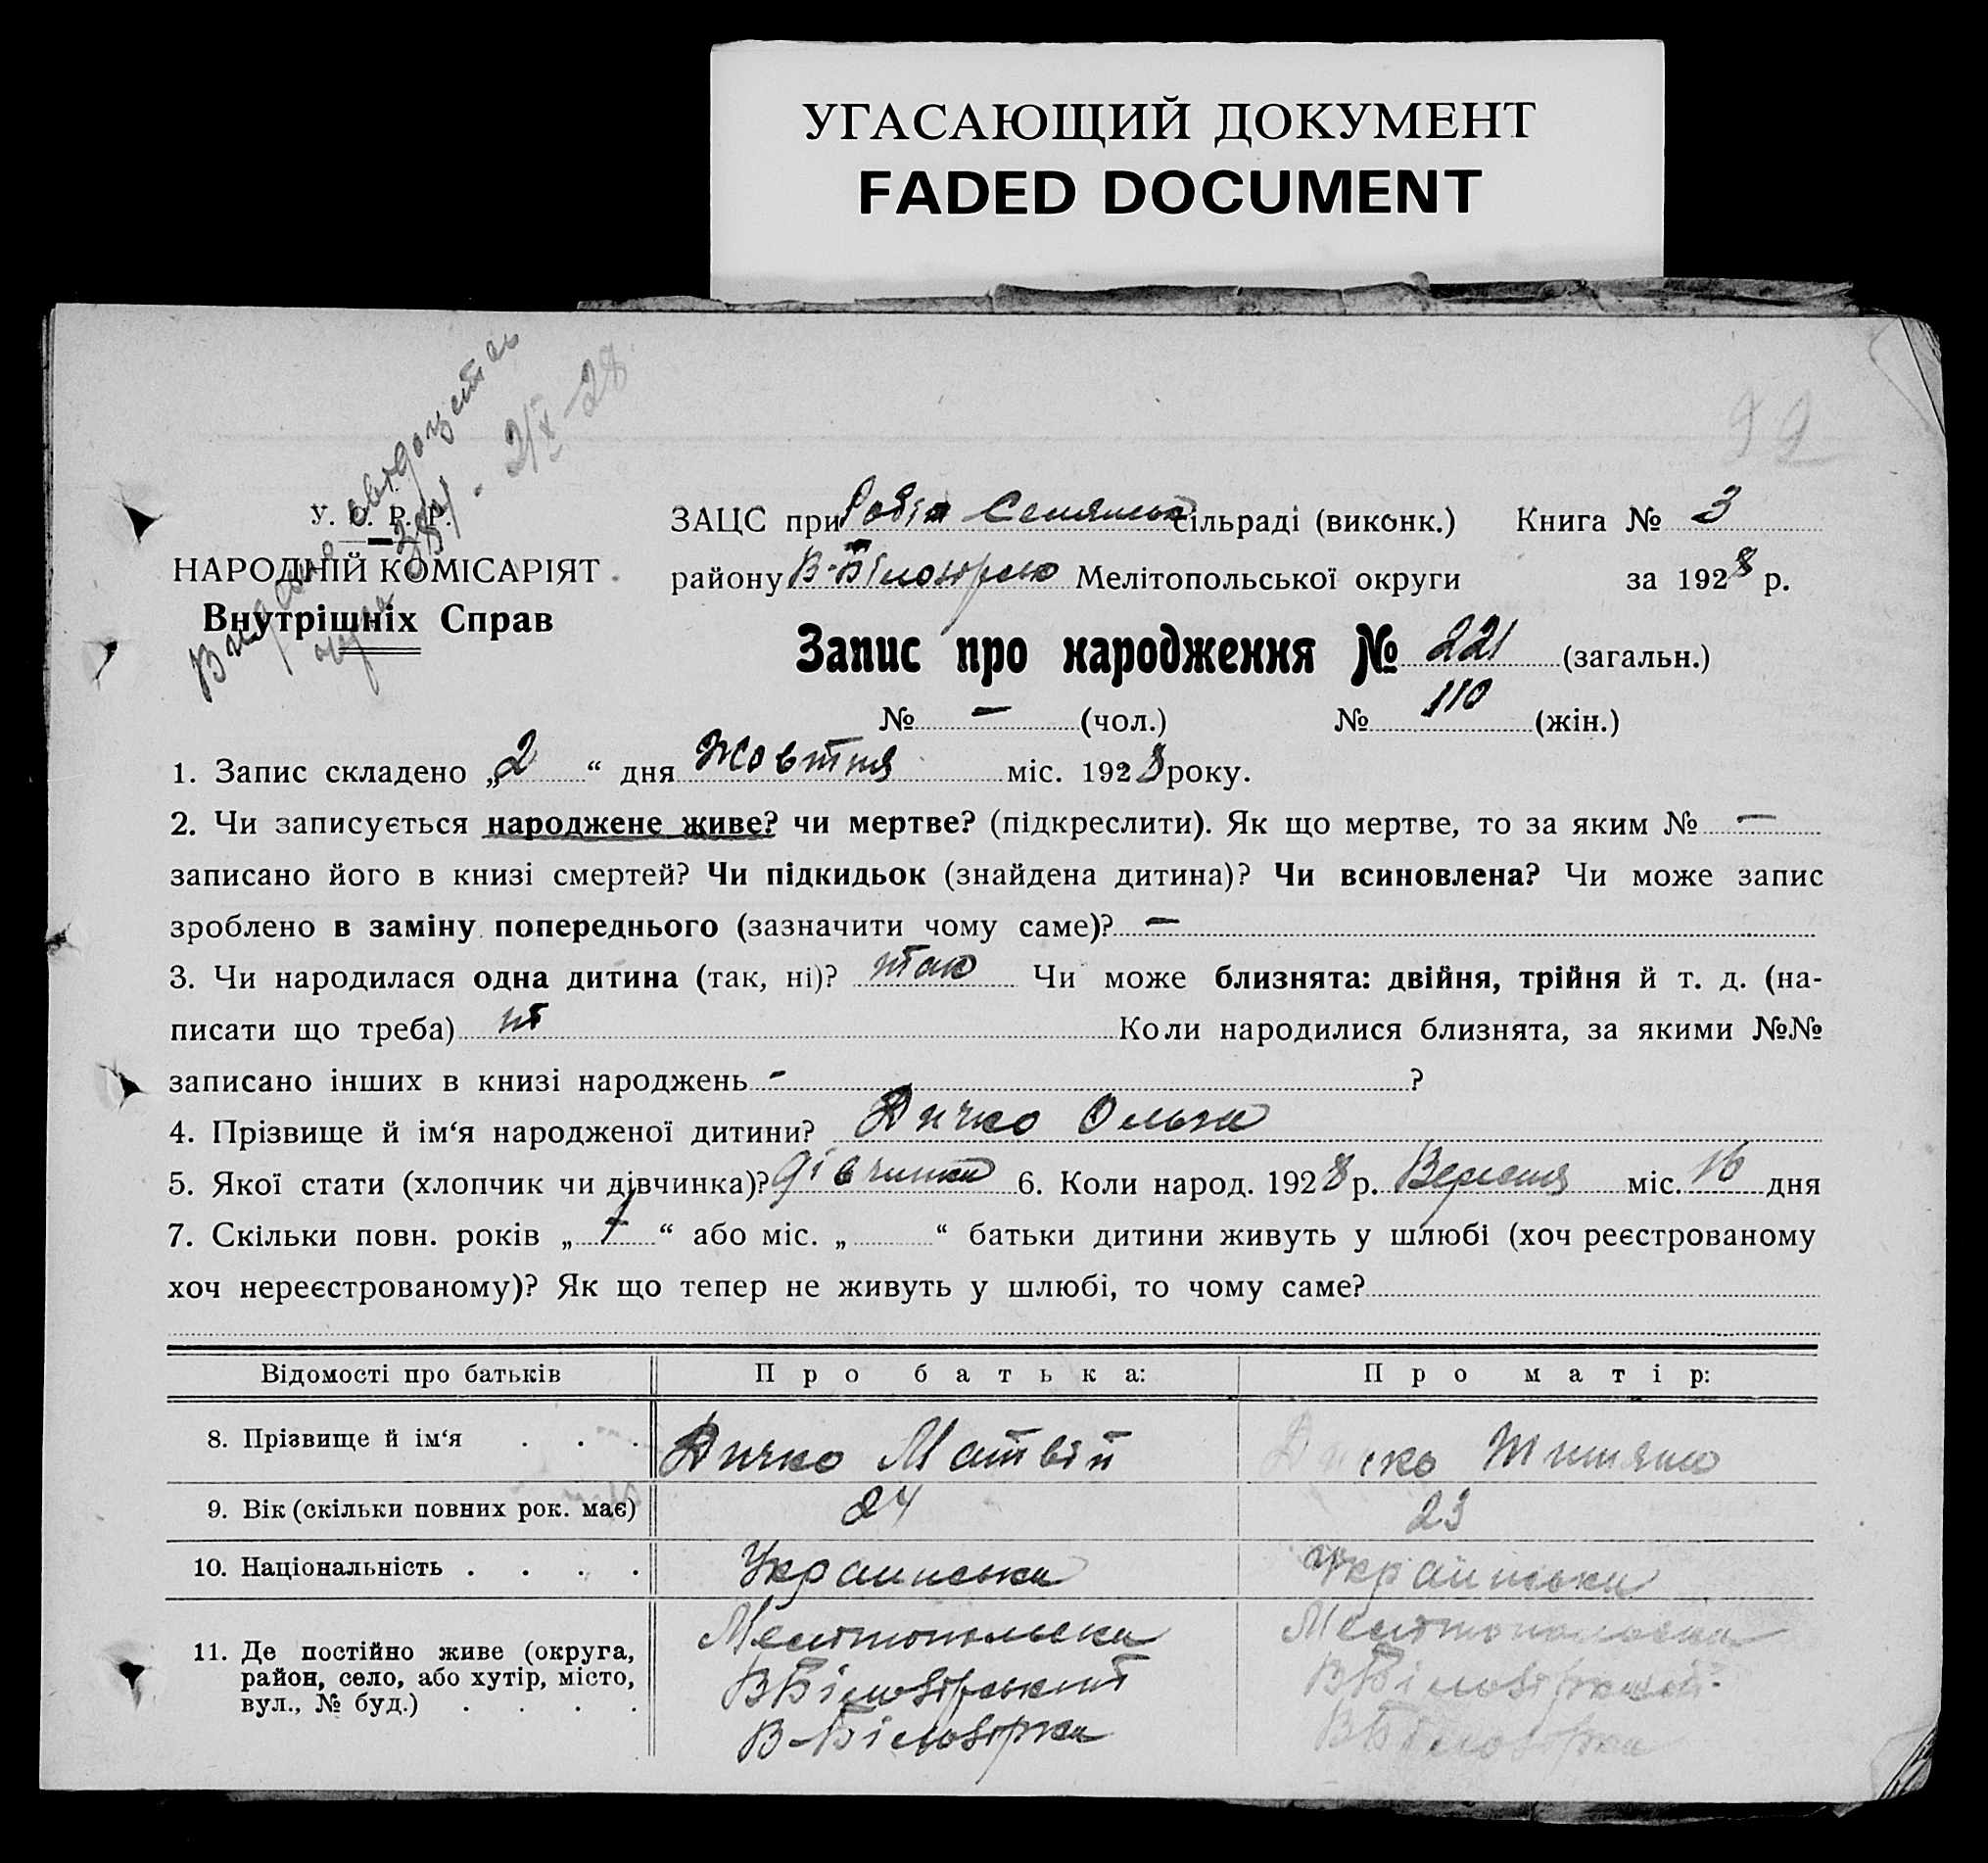 УГАСАЮЩИЙ ДОКУМЕНТ
FADED DOCUMENT
92
У. С. Р. Р.
НАРОДНІЙ КОМІСАРІЯТ
Внутрішніх Справ
ЗАЦС при сільраді (виконк.) Книга № 3
району В-Білозірсько Мелітопольської округи за 1928 р.
Запис про народження № 221 (загальн.)
№ — (чол.) № 110 (жін.)
1. Запис складено „2“ дня Жовтня міс. 1928 року.
2. Чи записується народжене живе? чи мертве? (підкреслити). Як що мертве, то за яким № —
записано його в книзі смертей? Чи підкидьок (знайдена дитина)? Чи всиновлена? Чи може запис
зроблено в заміну попереднього (зазначити чому саме)? —
3. Чи народилася одна дитина (так, ні)? так Чи може близнята: двійня, трійня й т. д. (на-
писати що треба) ні Коли народилися близнята, за якими №№
записано інших в книзі народжень - ?
4. Прізвище й ім‘я народженої дитини? Дичко Ольга
5. Якої стати (хлопчик чи дівчинка)? дівчинка 6. Коли народ. 1928 р. Вересня міс. 16 дня
7. Скільки повн. років „7“ або міс. „ “ батьки дитини живуть у шлюбі (хоч реєстрованому
хоч нереєстрованому)? Як що тепер не живуть у шлюбі, то чому саме?
Відомості про батьків Про батька: Про матір:
8. Прізвище й ім‘я . . . Дичко Матвій Дичко
9. Вік (скільки повних рок. має) 24 23
10. Національність . . . . Українська Українська
11. Де постійно живе (округа, Мелітопольска Мелітопольска
район, село, або хутір, місто, ВБілозірський ВБілозірський
вул., № буд.) . . . . В-Білозірка ВБілозірка